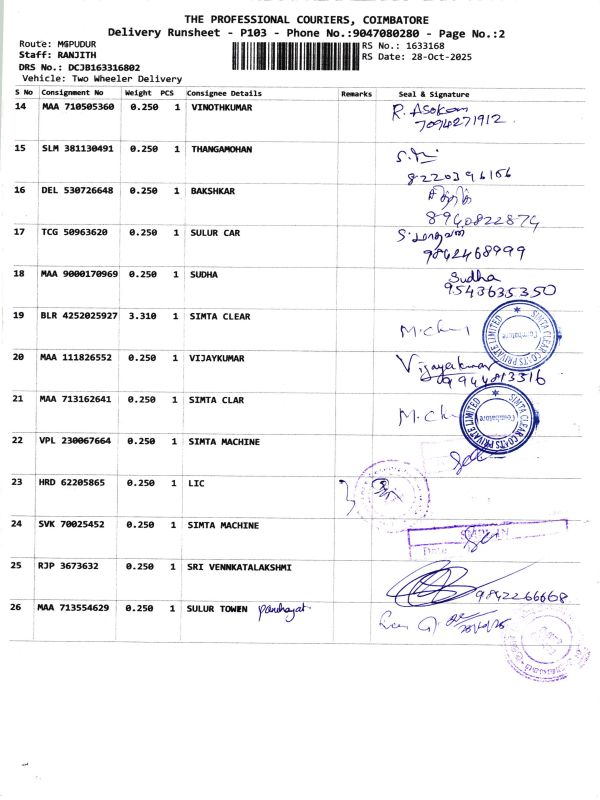 THE PROFESSIONAL COURIERS, COIMBATORE
Delivery Runsheet - P103 - Phone No.:9047080280 - Page No.:2
Route: MGPUDUR
RS No.: 1633168
Staff: RANJITH
RS Date: 28-Oct-2025
DRS No.: DCJB163316802
Vehicle: Two Wheeler Delivery
S No Consignment No Weight PCS Consignee Details Remarks Seal & Signature
14 MAA 710505360 0.250 1 VINOTHKUMAR R. Asokan
7094271912
15 SLM 381130491 0.250 1 THANGAMOHAN
8220396166
16 DEL 530726648 0.250 1 BAKSHKAR
8940822874
17 TCG 50963620 0.250 1 SULUR CAR
9842468999
18 MAA 9000170969 0.250 1 SUDHA Sudha
9543635350
19 BLR 4252025927 3.310 1 SIMTA CLEAR
SIMTA CLEAR COATS PRIVATE LIMITED
Coimbatore
20 MAA 111826552 0.250 1 VIJAYKUMAR Vijayakumar
9944813316
21 MAA 713162641 0.250 1 SIMTA CLAR
SIMTA CLEAR COATS PRIVATE LIMITED
Coimbatore
22 VPL 230067664 0.250 1 SIMTA MACHINE
23 HRD 62205865 0.250 1 LIC
24 SVK 70025452 0.250 1 SIMTA MACHINE
Date
25 RJP 3673632 0.250 1 SRI VENNKATALAKSHMI
9842266668
26 MAA 713554629 0.250 1 SULUR TOWEN panchayat